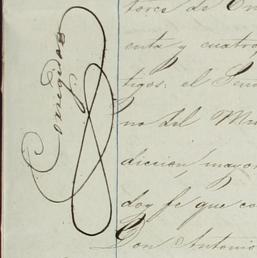 Corregidas
torce de En
enta y cuatro
tigos: el Señor
no del Mu
diccion, mayor
doy fe que co
Don Antonio